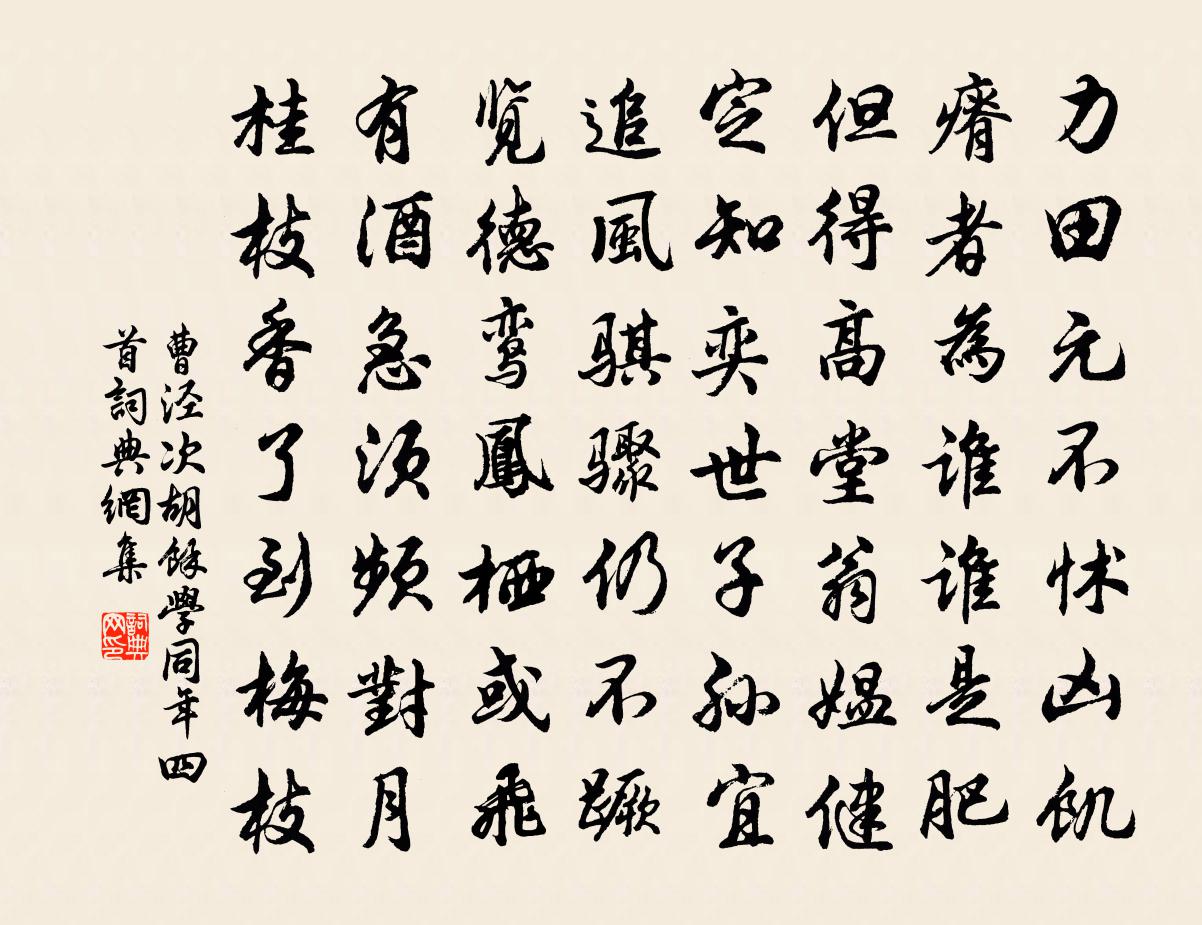 力田元不怵凶飢
瘠者為誰誰是肥
但得高堂翁媼健
定知奕世子孙宜
追風騏驟仍不蹶
覧德鸾鳳栖或飛
有酒急須频對月
桂枝香了到梅枝
曹泾次胡餘學同年四
首詞典網集
詞典网印